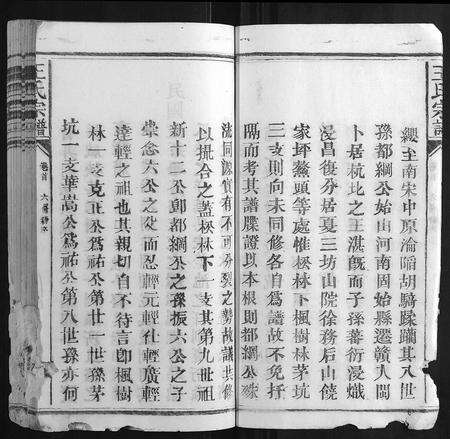 王氏宗譜
纓至南宋中原淪陷胡騎蹂躪其八世
孫都綱公始由河南固始縣遷贛人閩
卜居杭北之王淇旣而子孫蕃衍浸熾
浸昌復分居夏三坊山院徐務后山饒
家坪鰲頭等處惟棕林下楓樹林茅坑
三支則向未同修各自爲譜故不免扞
隔而考其譜牒證以本根則都綱公
流同源實有不可分裂之勢故議共修
以批合之蓋棕林下一支其第九世祖
新十二公卽都綱公之孫振六公之子
崇念六公之父而忍輕元輕社輕廣輕
達輕之祖也其親切自不待言卽楓樹
林一支克正公爲祐公第廿一世孫茅
坑一支華嵩公爲祐公第八世孫亦何
王氏宗譜
卷首